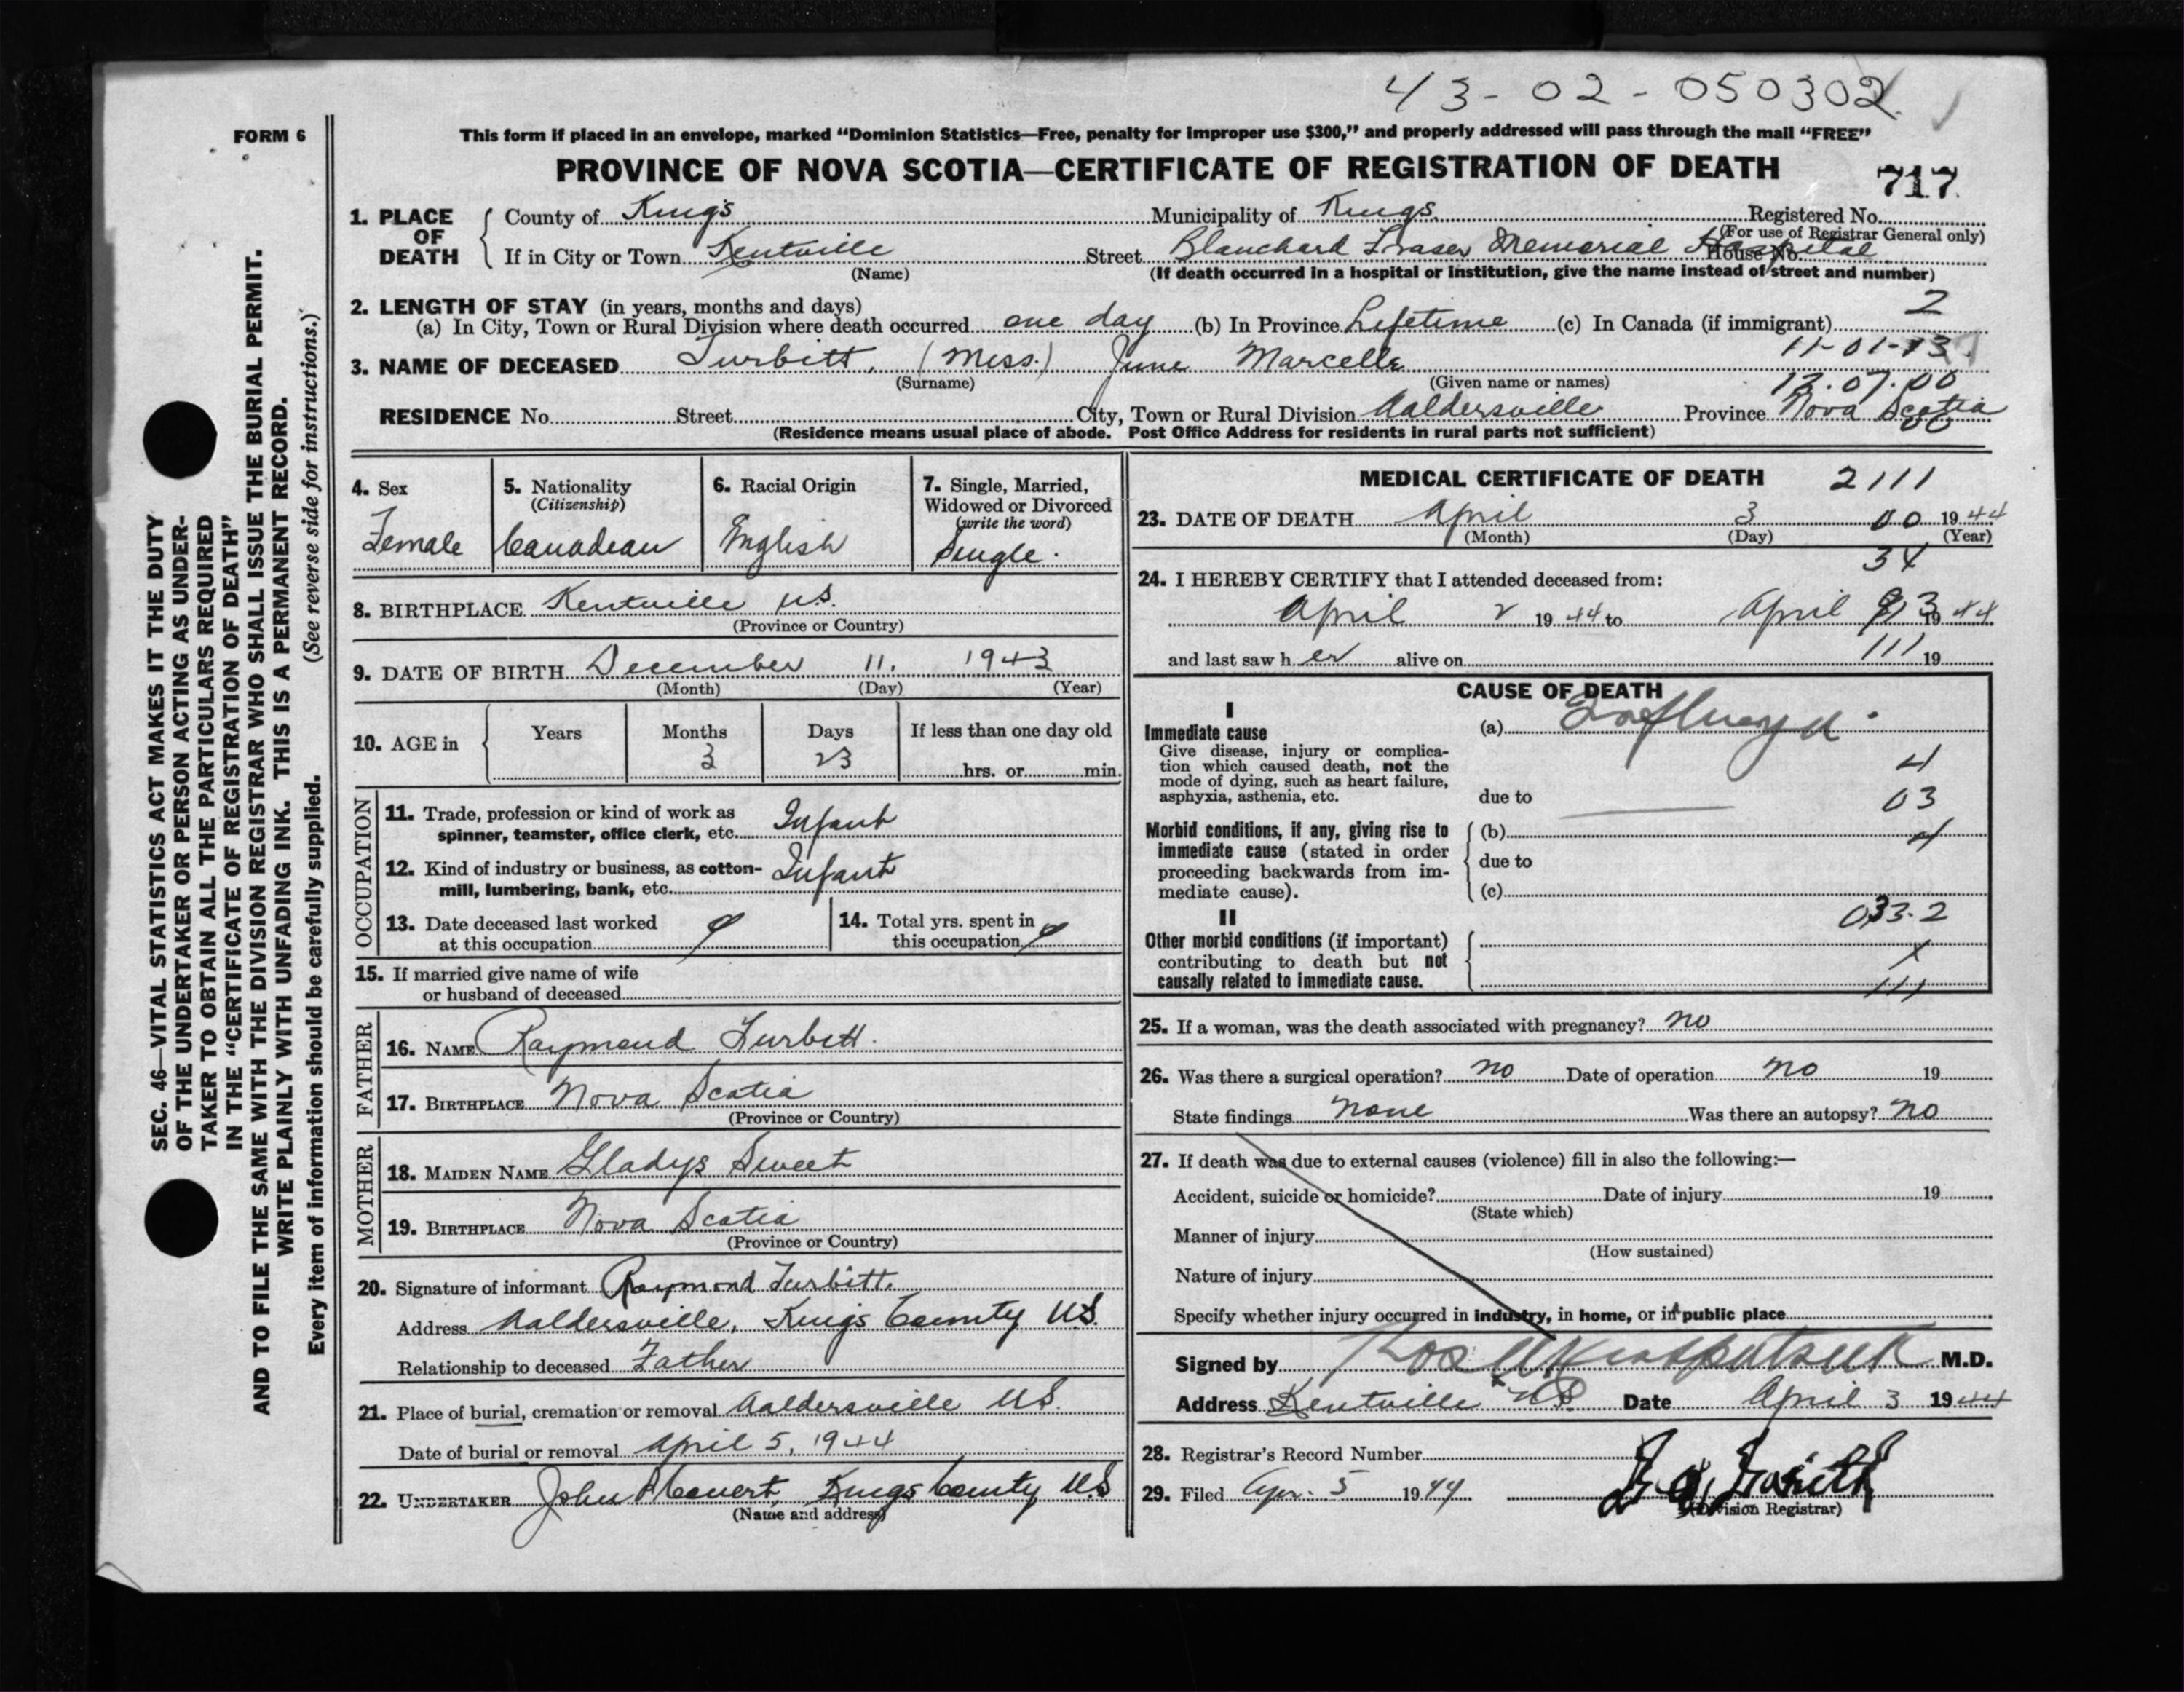 43-02-050302
FORM 6
This form if placed in an envelope, marked “Dominion Statistics—Free, penalty for improper use $300,” and properly addressed will pass through the mail “FREE”
PROVINCE OF NOVA SCOTIA—CERTIFICATE OF REGISTRATION OF DEATH
717
1. PLACE OF DEATH
County of Kings Municipality of Kings Registered No.
(For use of Registrar General only)
If in City or Town Kentville Street Blanchard Fraser Memorial Hospital House No.
(Name) (If death occurred in a hospital or institution, give the name instead of street and number)
2. LENGTH OF STAY (in years, months and days) 2
(a) In City, Town or Rural Division where death occurred one day (b) In Province Lifetime (c) In Canada (if immigrant)
11-01-13
3. NAME OF DECEASED Turbitt, (Miss.) June Marcelle
(Surname) (Given name or names)
12.07.00
RESIDENCE No. Street City, Town or Rural Division Aaldersville Province Nova Scotia
(Residence means usual place of abode. Post Office Address for residents in rural parts not sufficient)
4. Sex
Female
5. Nationality
(Citizenship)
Canadian
6. Racial Origin
English
7. Single, Married,
Widowed or Divorced
(write the word)
Single.
8. BIRTHPLACE Kentville N.S.
(Province or Country)
9. DATE OF BIRTH December 11. 1943
(Month) (Day) (Year)
10. AGE in
Years Months Days If less than one day old
3 23
hrs. or min.
OCCUPATION
11. Trade, profession or kind of work as
spinner, teamster, office clerk, etc. Infant
12. Kind of industry or business, as cotton-
mill, lumbering, bank, etc. Infant
13. Date deceased last worked
at this occupation
14. Total yrs. spent in
this occupation
15. If married give name of wife
or husband of deceased
FATHER
16. NAME Raymond Turbitt.
17. BIRTHPLACE Nova Scotia
(Province or Country)
MOTHER
18. MAIDEN NAME Gladys Sweet
19. BIRTHPLACE Nova Scotia
(Province or Country)
20. Signature of informant Raymond Turbitt.
Address Aaldersville, Kings County N.S.
Relationship to deceased Father
21. Place of burial, cremation or removal Aaldersville N.S.
Date of burial or removal April 5, 1944
22. UNDERTAKER John Kings County N.S
(Name and address)
MEDICAL CERTIFICATE OF DEATH 2111
23. DATE OF DEATH April 3 00 1944
(Month) (Day) (Year)
34
24. I HEREBY CERTIFY that I attended deceased from:
April 2 1944 to April 3 1944
and last saw her alive on 111 19
CAUSE OF DEATH
I
Immediate cause
Give disease, injury or complica-
tion which caused death, not the
mode of dying, such as heart failure,
asphyxia, asthenia, etc.
(a) Influenza.
4
due to 03
Morbid conditions, if any, giving rise to
immediate cause (stated in order
proceeding backwards from im-
mediate cause).
(b) 4
due to
(c)
033.2
II
Other morbid conditions (if important)
contributing to death but not
causally related to immediate cause.
X
111
25. If a woman, was the death associated with pregnancy? no
26. Was there a surgical operation? no Date of operation no 19
State findings none Was there an autopsy? no
27. If death was due to external causes (violence) fill in also the following:—
Accident, suicide or homicide? Date of injury 19
(State which)
Manner of injury
(How sustained)
Nature of injury
Specify whether injury occurred in industry, in home, or in public place
Signed by M.D.
Address Kentville NS Date April 3 1944
28. Registrar's Record Number
29. Filed Apr. 5 1944
(Division Registrar)
SEC. 46—VITAL STATISTICS ACT MAKES IT THE DUTY
OF THE UNDERTAKER OR PERSON ACTING AS UNDER-
TAKER TO OBTAIN ALL THE PARTICULARS REQUIRED
IN THE “CERTIFICATE OF REGISTRATION OF DEATH”
AND TO FILE THE SAME WITH THE DIVISION REGISTRAR WHO SHALL ISSUE THE BURIAL PERMIT.
WRITE PLAINLY WITH UNFADING INK. THIS IS A PERMANENT RECORD.
Every item of information should be carefully supplied. (See reverse side for instructions.)